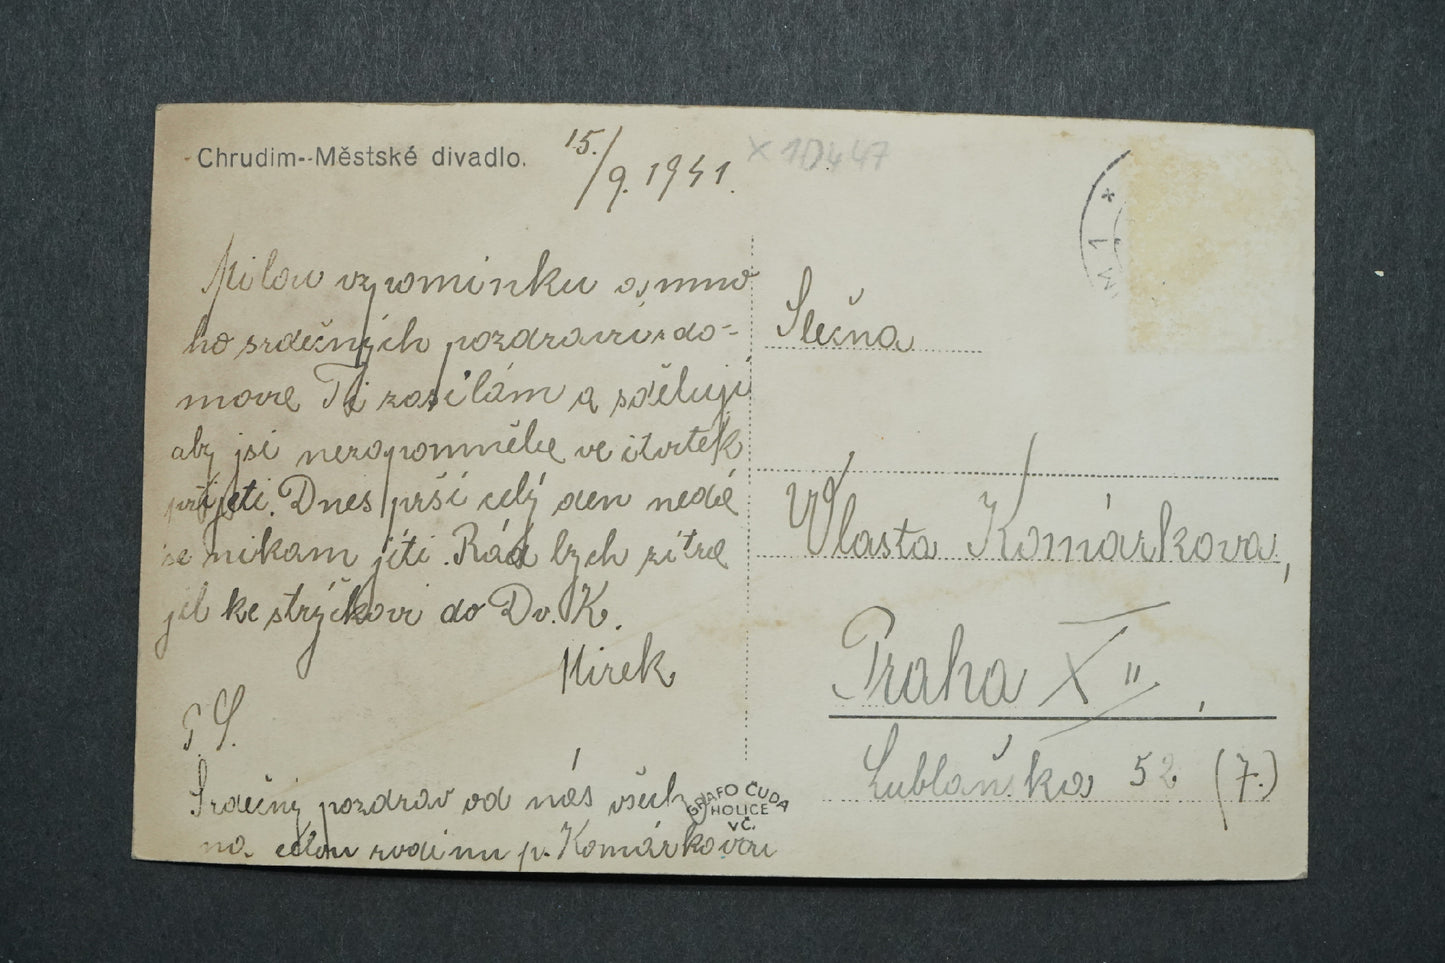 Chrudim--Městské divadlo.
15./9. 1941.
x 1D447
Milou vzpomínku a mno
ho srdečných pozdravů z do-
move Ti zasílám a sděluji
aby jsi nezapomněla ve čtvrtek
přijeti. Dnes prší celý den nedá
se nikam jíti. Rád bych zítra
jel ke strýčkovi do Dv. K.
Mirek
P. S.
Srdečný pozdrav od nás všech
na celou rodinu p. Komárkovou
GRAFO ČUDA
HOLICE
VČ.
M 1 *
Slečna
Vlasta Komárkova,
Praha XII,
Lublaňska 52 (7.)